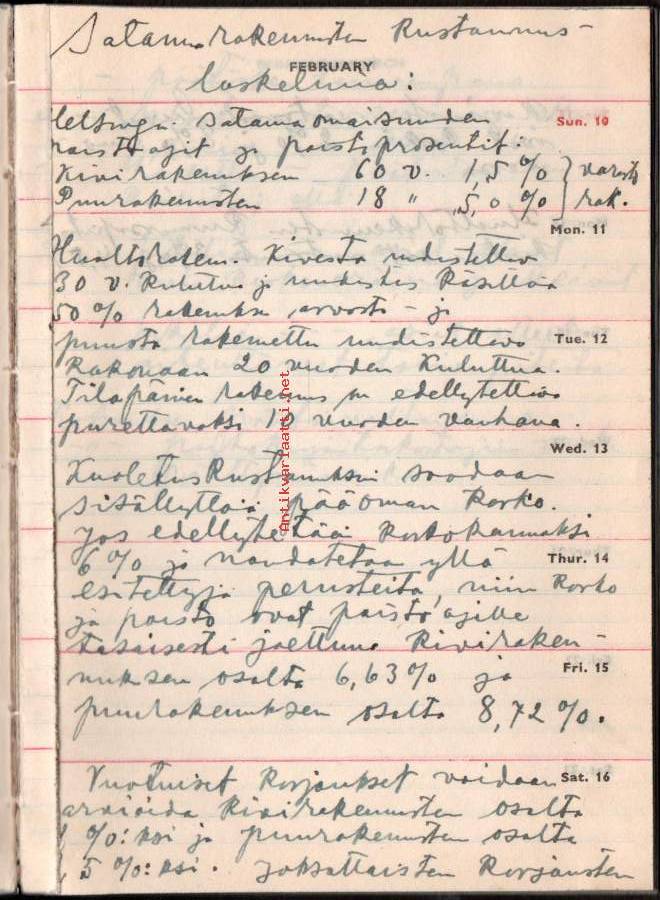 Satamarakennusten Kustannus-
FEBRUARY
laskelmia:
Helsingin satamaomaisuuden
Sun. 10
poistoajit ja poistoprosentit:
Kivirakennuksen 60 v. 1,5 % } varasto
Puurakennusten 18 " 5,0 % } rak.
Mon. 11
Huoltoraken. Kivestä uudistettava
30 v. Kuluttua ja uudistus Käsittää
50 % rakennuksen arvosta - ja
puusta rakennettu uudistettava
Tue. 12
Kokonaan 20 vuoden Kuluttua.
Tilapäinen rakennus on edellytettävä
purettavaksi 15 vuoden vanhana.
Wed. 13
Kuoletuskustannuksiin saadaan
sisällyttää pääoman Korko.
Jos edellytetään Korkokannaksi
6 % ja noudatetaan yllä
Thur. 14
esitettyjä perusteita, niin Korko
ja poisto ovat poistoajille
tasaisesti jaettuna Kiviraken-
nuksen osalta 6,63 % ja
Fri. 15
puurakennuksen osalta 8,72 %.
Vuotuiset Korjaukset voidaan
Sat. 16
arvioida Kivirakennusten osalta
%:ksi ja puurakennusten osalta
5 %:ksi. Joksottaisten Korjausten
Antikvariaatti.net